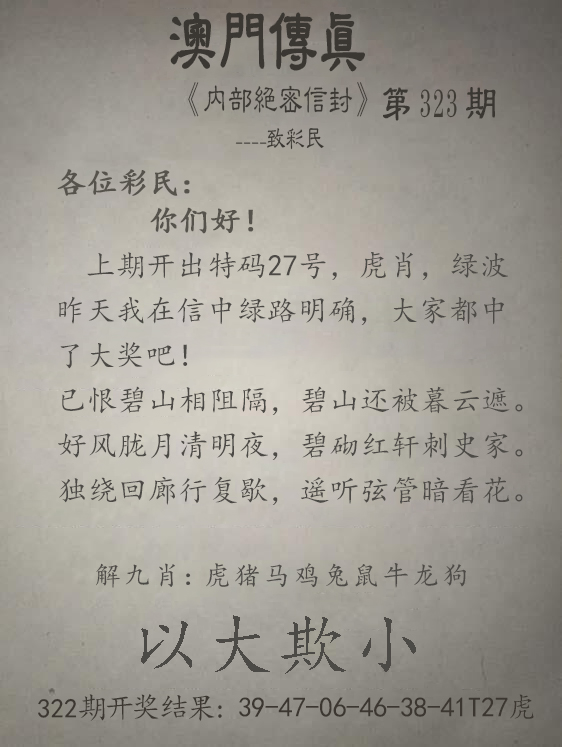 澳門傳眞
《内部絕密信封》第323期
----致彩民
各位彩民：
你们好！
上期开出特码27号，虎肖，绿波
昨天我在信中绿路明确，大家都中
了大奖吧！
已恨碧山相阻隔，碧山还被暮云遮。
好风胧月清明夜，碧砌红轩刺史家。
独绕回廊行复歇，遥听弦管暗看花。
解九肖：虎猪马鸡兔鼠牛龙狗
以大欺小
322期开奖结果：39-47-06-46-38-41T27虎